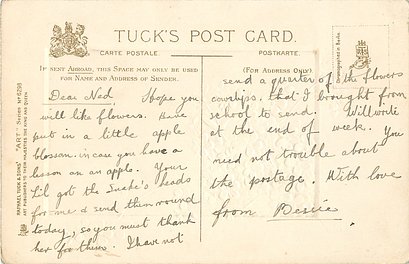 TUCK'S POST CARD.
CARTE POSTALE
POSTKARTE.
IF SENT ABROAD, THIS SPACE MAY ONLY BE USED
FOR NAME AND ADDRESS OF SENDER.
(FOR ADDRESS ONLY)
RAPHAEL TUCK & SONS' "ART" SERIES
ART PUBLISHERS TO THEIR MAJESTIES THE KING AND QUEEN
Dear Ned. I hope you
will like flowers. Have
put in a little apple
blossom in case you have a
lesson on an apple. Your
Lil got the Snake's heads
for me & send them round
today, so you must thank
her for them. I have not
send a quarter of the flowers
cowslips, that I brought from
school to send. Will write
at the end of week. You
need not trouble about
the postage. With love
from